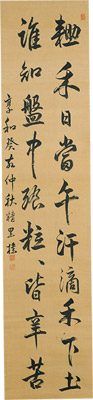 耡禾日當午汗滴禾下土
誰知盤中飧粒〻皆辛苦
享和癸亥仲秋精里樸